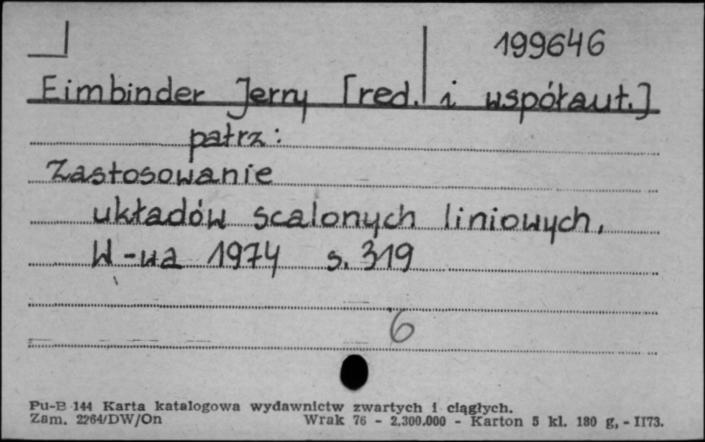 199646
Eimbinder Jerry [red. i współaut.]
patrz:
Zastosowanie
układów scalonych liniowych,
W-wa 1974 s. 319
6
Pu-B 144 Karta katalogowa wydawnictw zwartych i ciągłych.
Zam. 2264/DW/On Wrak 76 - 2.300.000 - Karton 5 kl. 180 g, - II73.